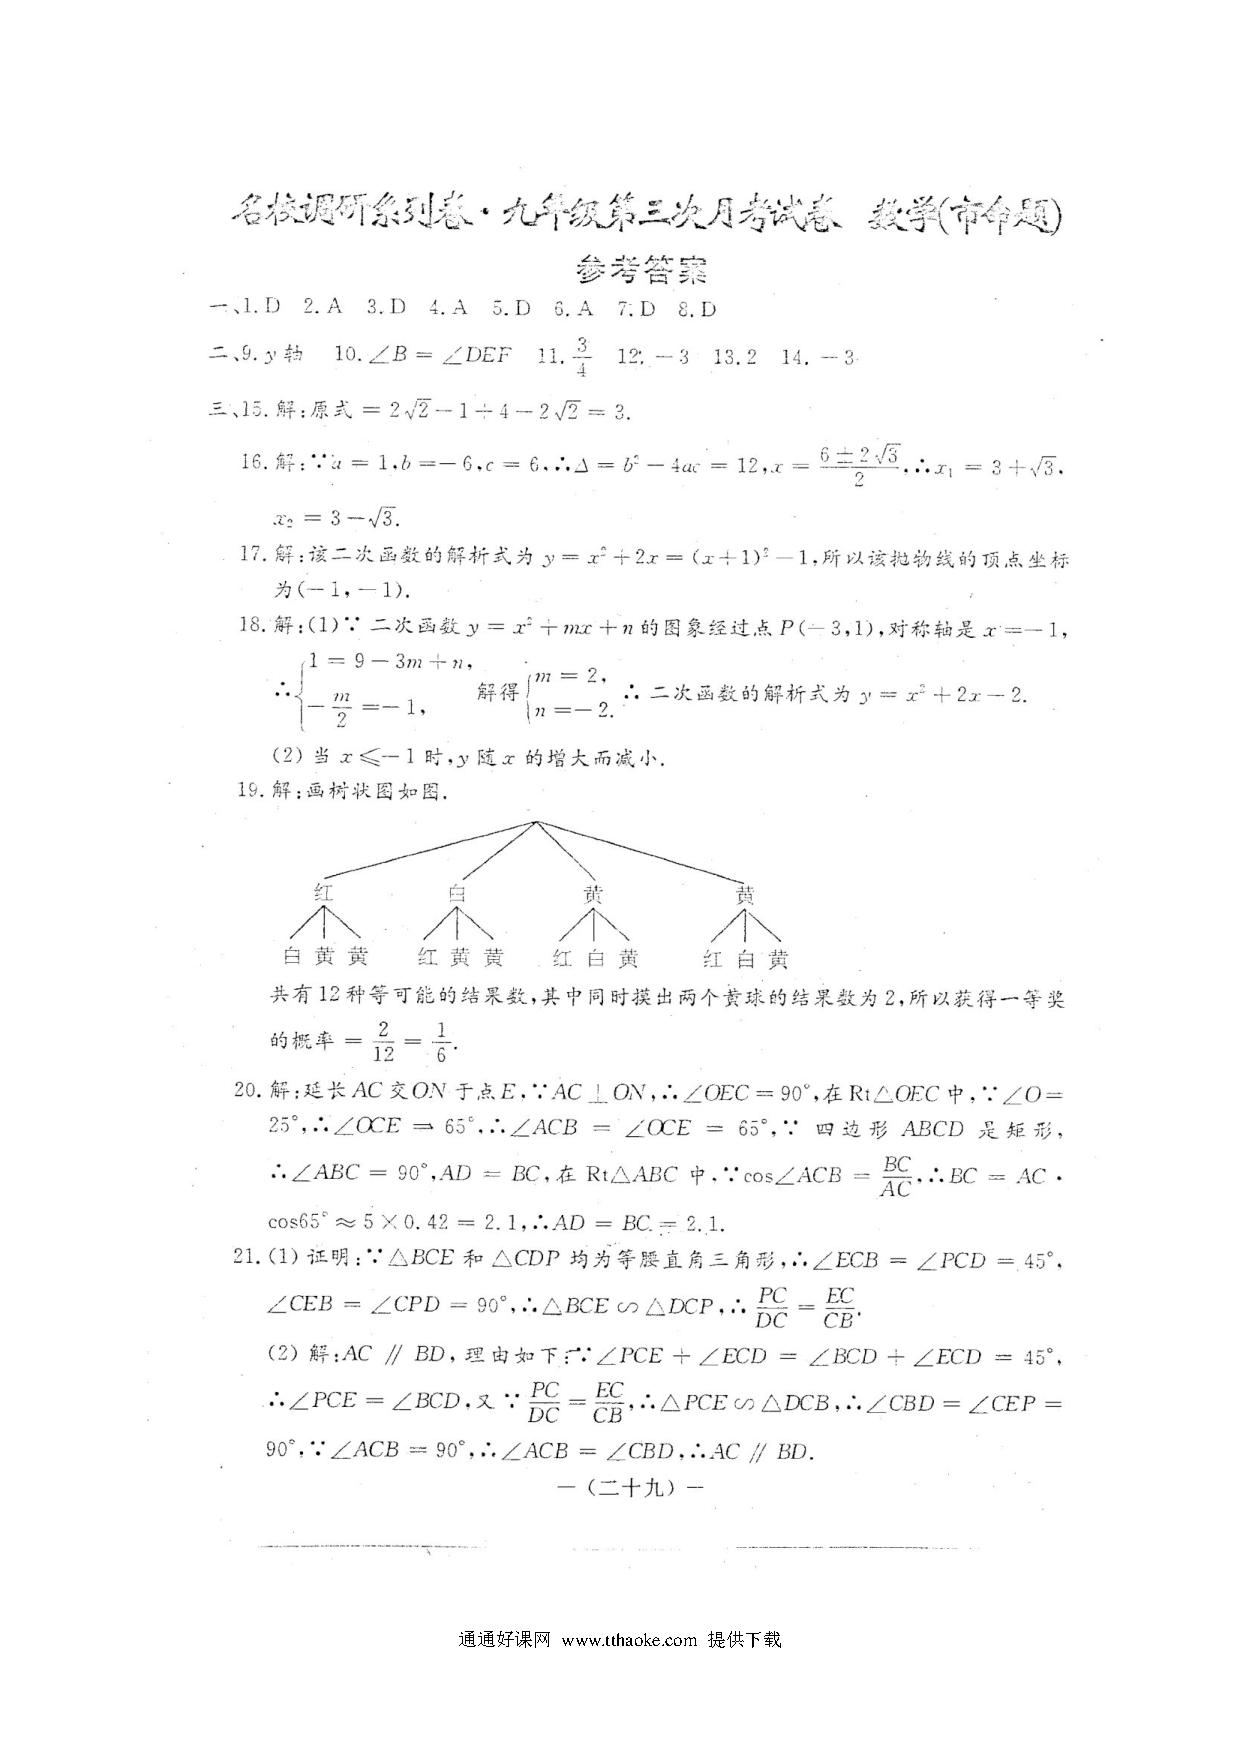 名校调研系列卷·九年级第三次月考试卷 数学(市命题)
参考答案
一、1. D 2. A 3. D 4. A 5. D 6. A 7. D 8. D
二、9. y 轴 10. ∠B = ∠DEF 11. 3/4 12. -3 13. 2 14. -3
三、15. 解:原式 = 2√2 - 1 + 4 - 2√2 = 3.
16. 解:∵a = 1,b = -6,c = 6,∴Δ = b² - 4ac = 12,x = (6 ± 2√3)/2,∴x₁ = 3 + √3,
x₂ = 3 - √3.
17. 解:该二次函数的解析式为 y = x² + 2x = (x + 1)² - 1,所以该抛物线的顶点坐标
为(-1, -1).
18. 解:(1)∵ 二次函数 y = x² + mx + n 的图象经过点 P(-3,1),对称轴是 x = -1,
∴{1 = 9 - 3m + n, -m/2 = -1, 解得{m = 2, n = -2. ∴ 二次函数的解析式为 y = x² + 2x - 2.
(2) 当 x ≤ -1 时,y 随 x 的增大而减小.
19. 解:画树状图如图.
红 白 黄 黄
白 黄 黄 红 黄 黄 红 白 黄 红 白 黄
共有12种等可能的结果数,其中同时摸出两个黄球的结果数为2,所以获得一等奖
的概率 = 2/12 = 1/6.
20. 解:延长 AC 交 ON 于点 E,∵AC ⊥ ON,∴∠OEC = 90°,在 Rt△OEC 中,∵∠O =
25°,∴∠OCE = 65°,∴∠ACB = ∠OCE = 65°,∵ 四边形 ABCD 是矩形,
∴∠ABC = 90°,AD = BC,在 Rt△ABC 中,∵cos∠ACB = BC/AC,∴BC = AC ·
cos65° ≈ 5 × 0.42 = 2.1,∴AD = BC = 2.1.
21. (1) 证明:∵△BCE 和 △CDP 均为等腰直角三角形,∴∠ECB = ∠PCD = 45°,
∠CEB = ∠CPD = 90°,∴△BCE ∽ △DCP,∴ PC/DC = EC/CB.
(2) 解:AC ∥ BD,理由如下:∵∠PCE + ∠ECD = ∠BCD + ∠ECD = 45°,
∴∠PCE = ∠BCD,又∵ PC/DC = EC/CB,∴△PCE ∽ △DCB,∴∠CBD = ∠CEP =
90°,∵∠ACB = 90°,∴∠ACB = ∠CBD,∴AC ∥ BD.
—(二十九)—
通通好课网 www.tthaoke.com 提供下载